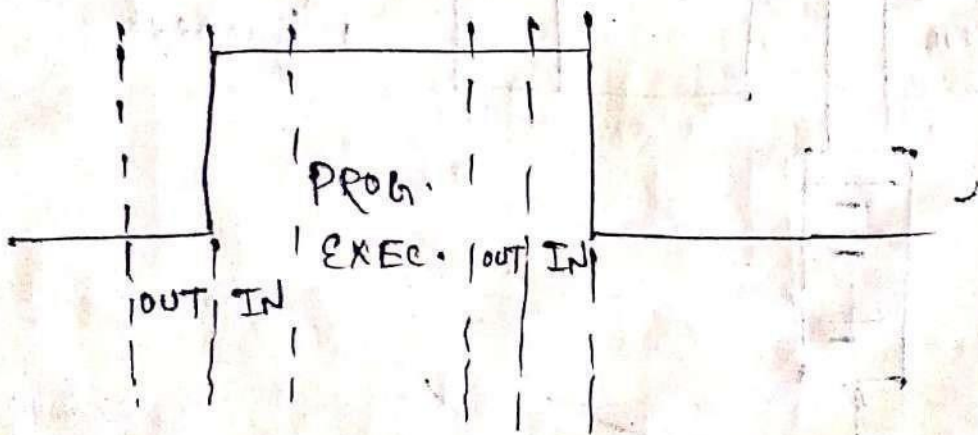 PROG.
EXEC. OUT IN
OUT IN